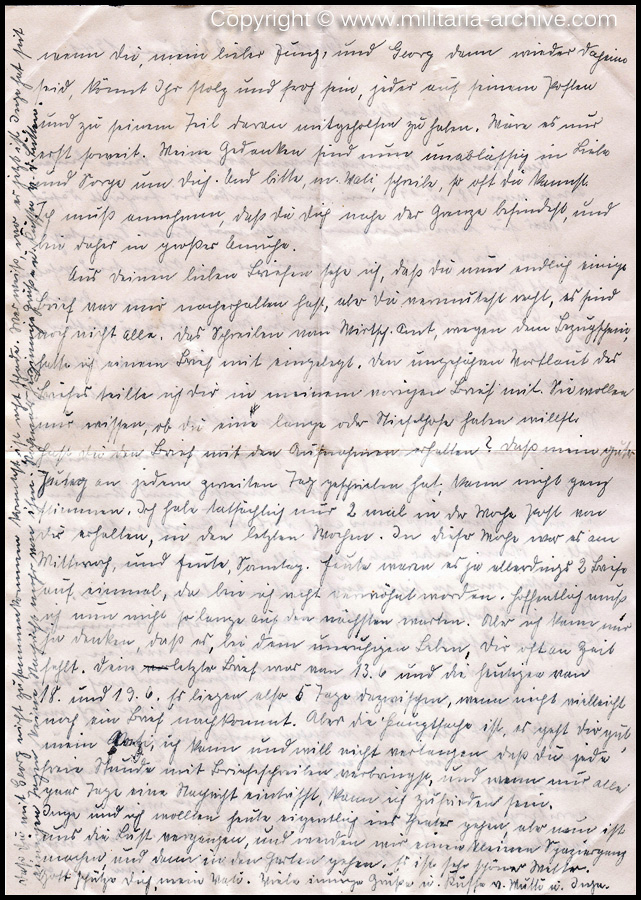 Copyright © www.militaria-archive.com
wenn Du, mein lieber Jung, und Georg dann wieder daheim
seid könnt Ihr stolz und froh sein, jeder auf seinem Posten
und zu seinem Teil daran mitgeholfen zu haben. Wäre es nur
erst soweit. Meine Gedanken sind nun unablässig in Liebe
und Sorge um Dich. Und bitte, m. schreibe, so oft Du kannst.
Ich muß annehmen, daß Du Dich nahe der Grenze befindest, und
bin daher in großer Unruhe.
Aus Deinen lieben Briefen sehe ich, daß Du nun endlich einige
Brief von mir nacherhalten hast, aber Du vermutest recht, es sind
noch nicht alle. Das Schreiben vom Wirtsch. Amt, wegen dem Bezugschein,
hatte ich einem Brief mit eingelegt. Den ungefähren Wortlaut des
Briefes teilte ich Dir in meinem vorigen Brief mit. Sie wollen
nur wissen, ob Du eine lange oder Stiefelhose haben willst.
Hast Du den Brief mit den Aufnahmen erhalten? Daß mein guter
an jedem zweiten Tag geschrieben hat, kann nicht ganz
stimmen. Ich habe tatsächlich nur 2 mal in der Woche Post von
Dir erhalten, in den letzten Wochen. In dieser Woche war es am
Mittwoch, und heute, Sonntag. Heute waren es ja allerdings 2 Briefe
auf einmal, da bin ich recht verwöhnt worden. Hoffentlich muß
ich nun nicht so lange auf den nächsten warten. Aber ich kann mir
ja denken, daß es, bei dem unruhigen Leben, Dir oft an Zeit
fehlt. Dein letzter Brief war vom 13.6 und die heutigen vom
18. und 19.6. Es liegen also 5 Tage dazwischen, wenn nicht vielleicht
noch ein Brief nachkommt. Aber die Hauptsache ist, es geht Dir gut,
mein ich kann und will nicht verlangen daß Du jede
freie Stunde mit Briefschreiben verbringst, und wenn nur alle
paar Tage eine Nachricht eintrifft, kann ich zufrieden sein.
Inge und ich wollten heute eigentlich ins Theater gehen, aber nun ist
uns die Lust vergangen, und werden wir einen kleinen Spaziergang
machen, und dann in den Garten gehen. Es ist sehr schönes Wetter.
Gott schütze Dich, mein Viele innige Grüße u. Küsse v. Mutti u. Inge.
daß Du mit Georg nicht zusammenkommen konntest, ist recht schade. Wer weiß, wo er jetzt ist.